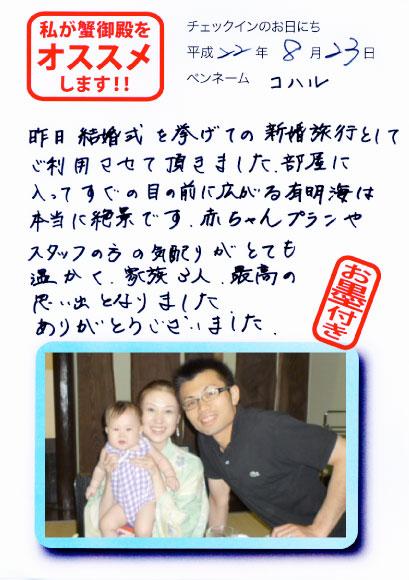 私が蟹御殿を
オススメ
します!!
チェックインのお日にち
平成 22 年 8 月 23 日
ペンネーム コハル
昨日 結婚式 を挙げての 新婚旅行として
ご利用させて頂きました、部屋に
入ってすぐの目の前に広がる有明海は
本当に絶景です、赤ちゃんプランや
スタッフの方の気配りがとても
温かく、家族3人、最高の
思い出となりました、
ありがとうございました、
お墨付き